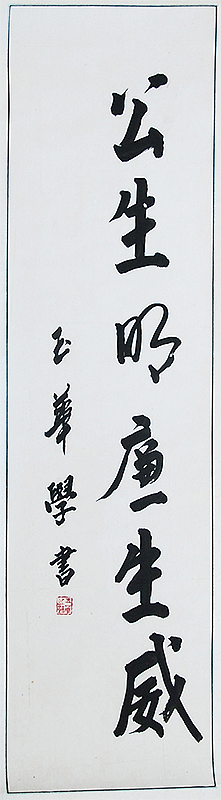 公生明廉生威
玉華學書